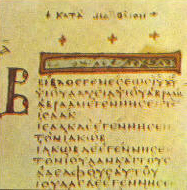 ΚΑΤΑ ΜΑΘΘΕΟΝ
ΒΙΒΛΟϹ ΓΕΝΕϹΕΩϹ ΙΥ ΧΥ
ΥΙΟΥ ΔΑΔ ΥΙΟΥ ΑΒΡΑΑΜ
ΑΒΡΑΑΜ ΕΓΕΝΝΗϹΕ ΤΟΝ
ΙϹΑΑΚ
ΙϹΑΑΚ ΔΕ ΕΓΕΝΝΗϹΕ
ΤΟΝ ΙΑΚΩΒ
ΙΑΚΩΒ ΔΕ ΕΓΕΝΝΗϹΕ
ΤΟΝ ΙΟΥΔΑΝ ΚΑΙ ΤΟΥϹ
ΑΔΕΛΦΟΥϹ ΑΥΤΟΥ
ΙΟΥΔΑϹ ΔΕ ΕΓΕΝΝΗϹΕ